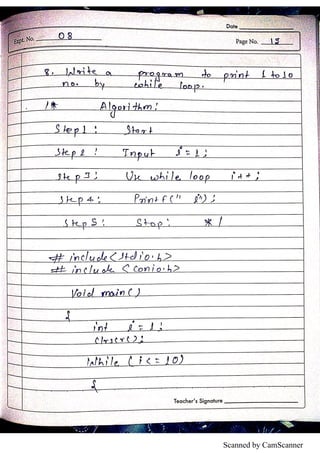 Date
Expt. No. 08
Page No. 15
8. Write a program to print 1 to 10
no. by while loop.
/* Algorithm:
Step1: Start
Step2: Input i=1;
Step3: Use while loop i++;
Step4: Printf(" i);
Step5: Stop. */
# include<stdio.h>
# include <conio.h>
Void main()
{
int i=1;
clrscr();
While (i<=10)
{
Teacher's Signature
Scanned by CamScanner